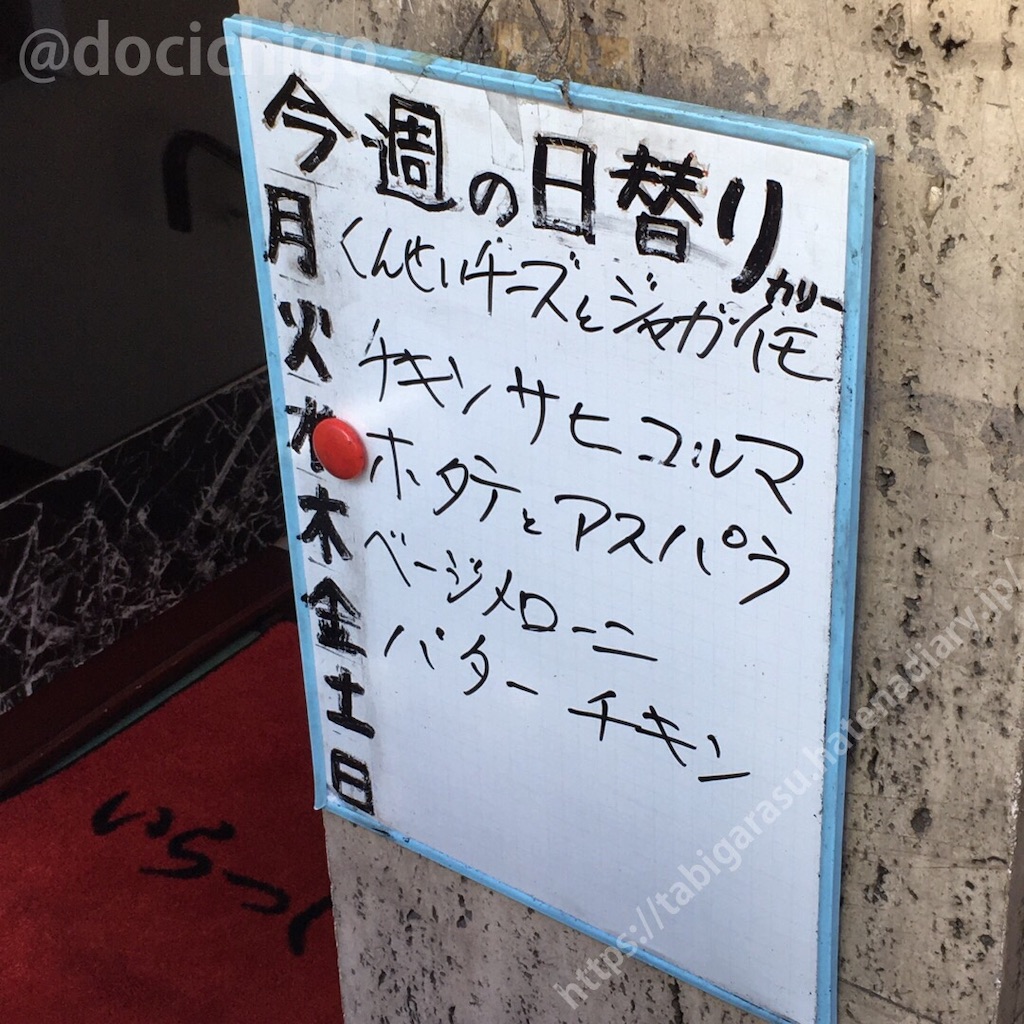 @docichigo
今週の日替り
カリー
月 くんせいチーズとジャガイモ
火 チキンサヒコルマ
水 ホタテとアスパラ
木 ベージメローニ
金 バターチキン
土
日
いらっし
https://tabigarasu.hatenadiary.jp/